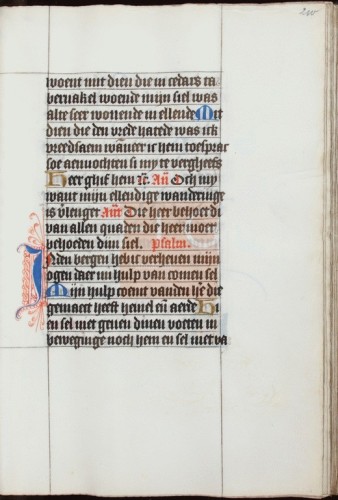 woent mit dien die in cedars ta
bernakel woende mijn siel was
alte seer wonende in ellende Mit
dien die den vrede hatede was ick
vreedsaem wanneer ic hem toesprac
soe aenvochten si my te vergheefs
Heer ghif hem &c. Añ Och my
want mijn ellendige wanderinge
is verlenget Añ Die heer behoet di
van allen quaden die heer moet
behoeden dijn siel. Psalm.
In den bergen heb ic verheven mijn
ogen daer mi hulp van comen sel
Mijn hulp coemt vanden here die
gemaect heeft hemel en̄ aerde Hi
en sel niet geven dinen voeten in
beweginge noch hem en sel niet va